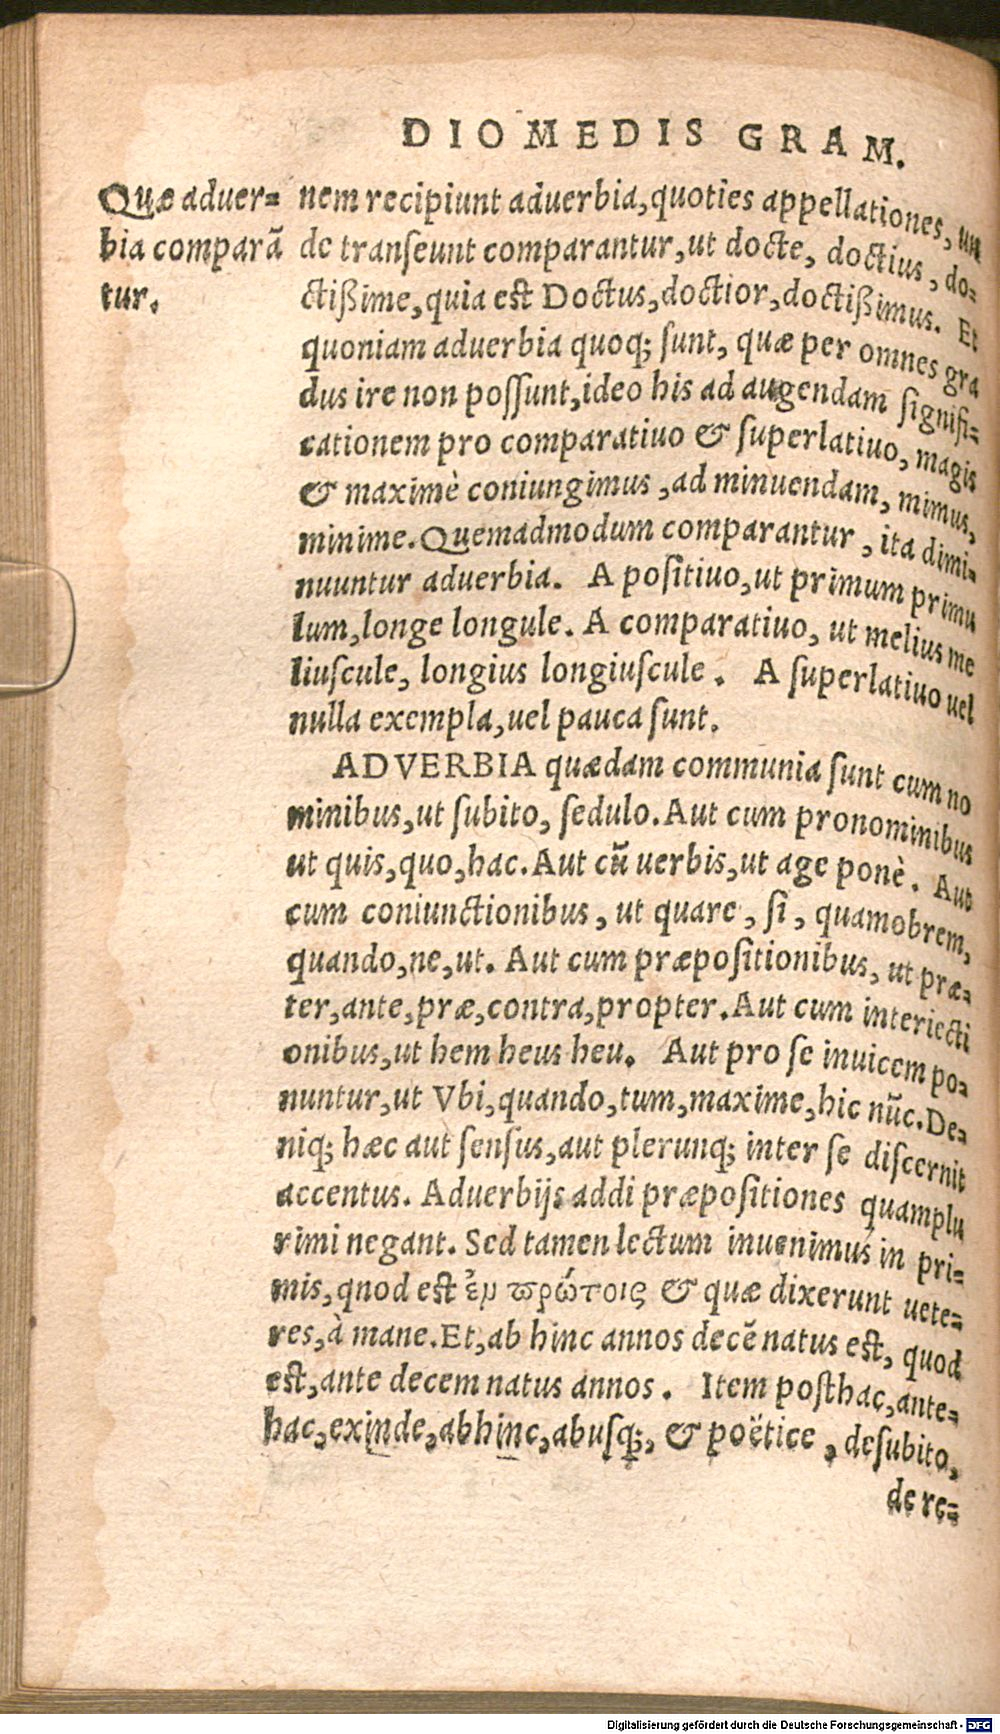 DIOMEDIS GRAM.
Quæ aduer=
bia comparā
tur.
nem recipiunt aduerbia, quoties appellationes, un
de transeunt comparantur, ut docte, doctius, do=
ctißime, quia est Doctus, doctior, doctißimus. Et
quoniam aduerbia quoq; sunt, quæ per omnes gra
dus ire non possunt, ideo his ad augendam signifi=
cationem pro comparatiuo & superlatiuo, magis
& maximè coniungimus, ad minuendam, mimus,
minime. Quemadmodum comparantur, ita dimi=
nuuntur aduerbia. A positiuo, ut primum primu
lum, longe longule. A comparatiuo, ut melius me
liuscule, longius longiuscule. A superlatiuo uel
nulla exempla, uel pauca sunt.
ADVERBIA quædam communia sunt cum no
minibus, ut subito, sedulo. Aut cum pronominibus
ut quis, quo, hac. Aut cū uerbis, ut age ponè. Aut
cum coniunctionibus, ut quare, si, quamobrem,
quando, ne, ut. Aut cum præpositionibus, ut præ=
ter, ante, præ, contra, propter. Aut cum interiecti
onibus, ut hem heus heu. Aut pro se inuicem po=
nuntur, ut Vbi, quando, tum, maxime, hic nūc. De=
niq; hæc aut sensus, aut plerunq; inter se discernit
accentus. Aduerbijs addi præpositiones quamplu
rimi negant. Sed tamen lectum inuenimus in pri=
mis, qnod est ἐν πρώτοις & quæ dixerunt uete=
res, à mane. Et, ab hinc annos decē natus est, quod
est, ante decem natus annos. Item posthac, ante=
hac, exinde, abhinc, abusq;, & poëtice, desubito,
de re=
Digitalisierung gefördert durch die Deutsche Forschungsgemeinschaft - DFG